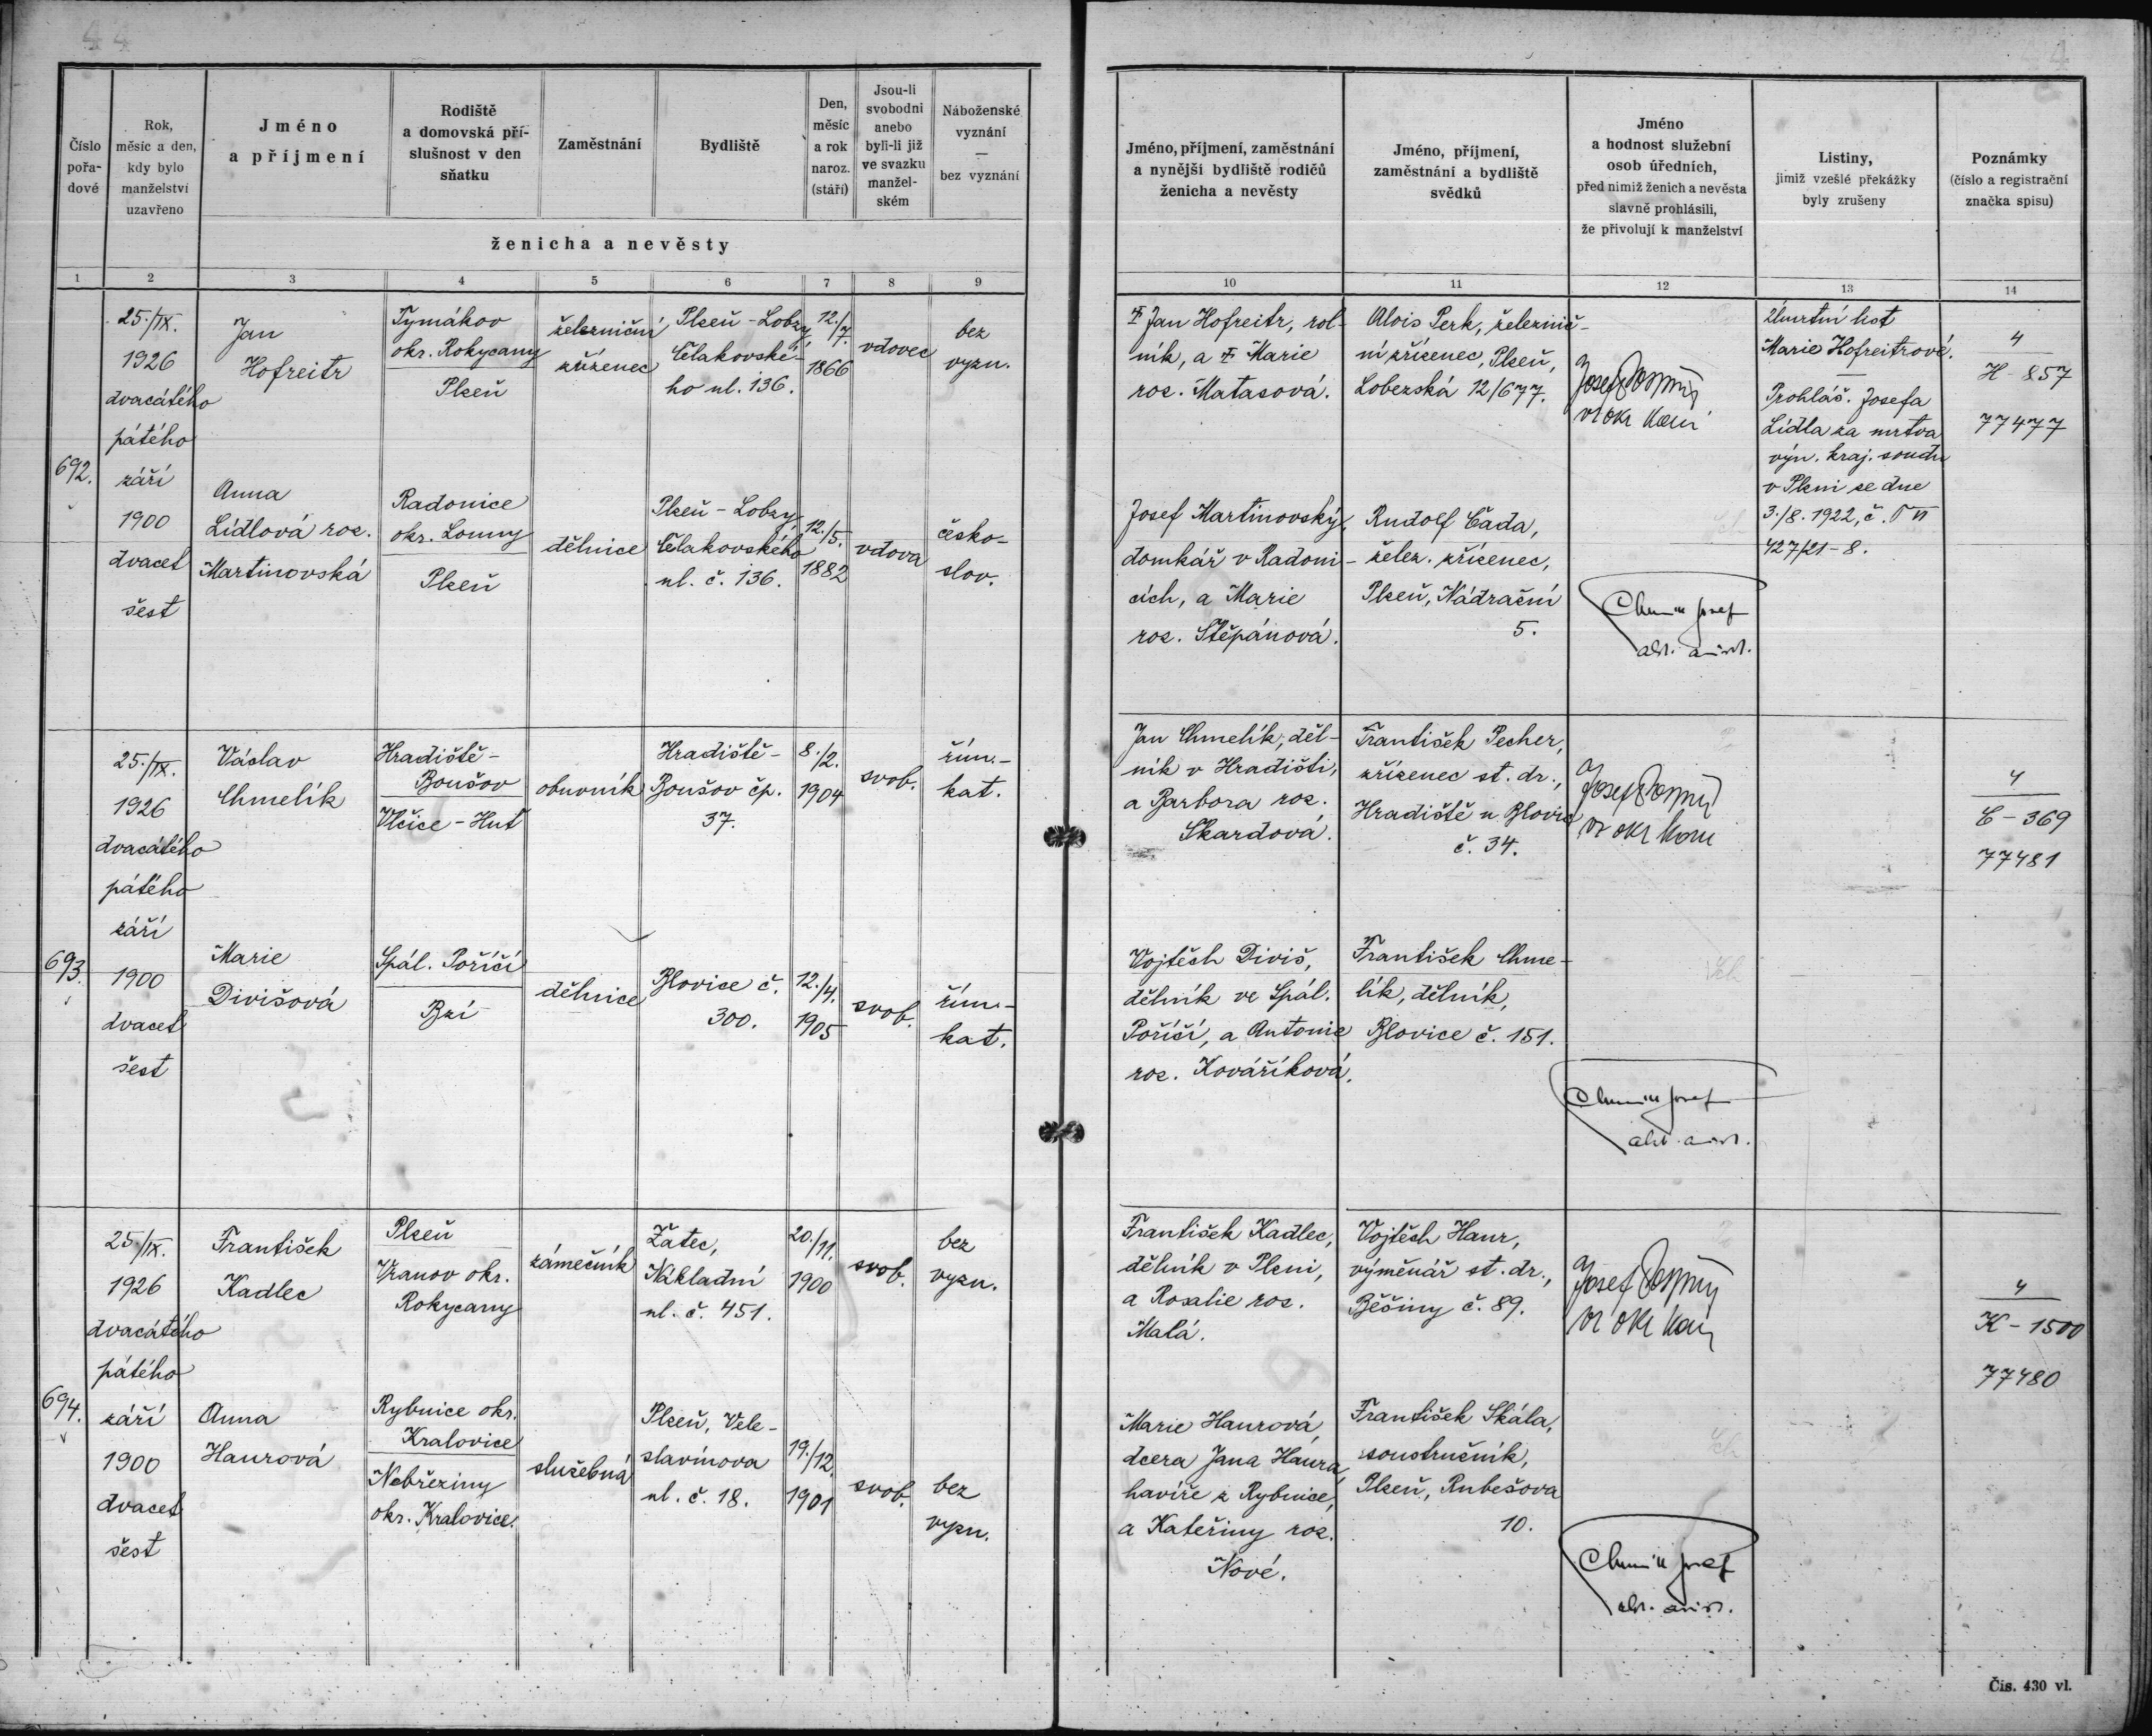 44
Číslo
pořa-
dové
Rok,
měsíc a den,
kdy bylo
manželství
uzavřeno
Jméno
a příjmení
Rodiště
a domovská pří-
slušnost v den
sňatku
Zaměstnání
Bydliště
Den,
měsíc
a rok
naroz.
(stáří)
Jsou-li
svobodni
anebo
byli-li již
ve svazku
manžel-
ském
Náboženské
vyznání
—
bez vyznání
ženicha a nevěsty
1 2 3 4 5 6 7 8 9
692.
25./IX.
1926
dvacátého
pátého
září
1900
dvacet
šest
Jan
Hofreitr
Tymákov
okr. Rokycany
Plzeň
železniční
zřízenec
Plzeň - Lobzy,
Čelakovské-
ho ul. 136.
12./7.
1866
vdovec
bez
vyzn.
Anna
Lídlová roz.
Martinovská
Radonice
okr. Louny
Plzeň
dělnice
Plzeň - Lobzy,
Čelakovského
ul. č. 136.
12./5.
1882
vdova
česko-
slov.
693.
25./IX.
1926
dvacátého
pátého
září
1900
dvacet
šest
Václav
Chmelík
Hradiště-
Boušov
Vlčice - Huť
obuvník
Hradiště-
Boušov čp.
37.
8./2.
1904
svob.
řím.-
kat.
Marie
Divišová
Spál. Poříčí
Bzí
dělnice
Blovice č.
300.
12./4.
1905
svob.
řím.-
kat.
694.
25/IX.
1926
dvacátého
pátého
září
1900
dvacet
šest
František
Kadlec
Plzeň
Vranov okr.
Rokycany
zámečník
Žatec,
Nákladní
ul. č. 451.
20./11.
1900
svob.
bez
vyzn.
Anna
Haurová
Rybnice okr.
Kralovice
Nebřeziny
okr. Kralovice.
služebná
Plzeň, Vele-
slavínova
ul. č. 18.
19./12.
1901
svob.
bez
vyzn.
44
Jméno, příjmení, zaměstnání
a nynější bydliště rodičů
ženicha a nevěsty
Jméno, příjmení,
zaměstnání a bydliště
svědků
Jméno
a hodnost služební
osob úředních,
před nimiž ženich a nevěsta
slavně prohlásili,
že přivolují k manželství
Listiny,
jimiž vzešlé překážky
byly zrušeny
Poznámky
(číslo a registrační
značka spisu)
10 11 12 13 14
Jan Hofreitr, rol-
ník, a Marie
roz. Matasová.
Alois Perk, železnič-
ní zřízenec, Plzeň,
Lobezská 12/677.
Josef
Úmrtní list
Marie Hofreitrové.
—
Prohláš. Josefa
Lídla za mrtva
výn. kraj. soudu
v Plzni ze dne
3./8. 1922, č. T VI
427/21-8.
4
H-857
77477
Josef Martinovský,
domkář v Radoni-
cích, a Marie
roz. Štěpánová.
Rudolf Čada,
želez. zřízenec,
Plzeň, Nádražní
5.
Josef
Jan Chmelík, děl-
ník v Hradišti,
a Barbora roz.
Skardová.
František Pecher,
zřízenec st. dr.,
Hradiště u Blovic
č. 34.
Josef
4
C-369
77481
Vojtěch Diviš,
dělník ve Spál.
Poříčí, a Antonie
roz. Kováříková.
František Chme-
lík, dělník,
Blovice č. 151.
Josef
František Kadlec,
dělník v Plzni,
a Rosalie roz.
Malá.
Vojtěch Haur,
výměnář st. dr.,
Běšiny č. 89.
Josef
4
K-1500
77480
Marie Haurová,
dcera Jana Haura,
havíře z Rybnice,
a Kateřiny roz.
Nové.
František Skála,
soustružník,
Plzeň, Rubešova
10.
Josef
Čís. 430 vl.